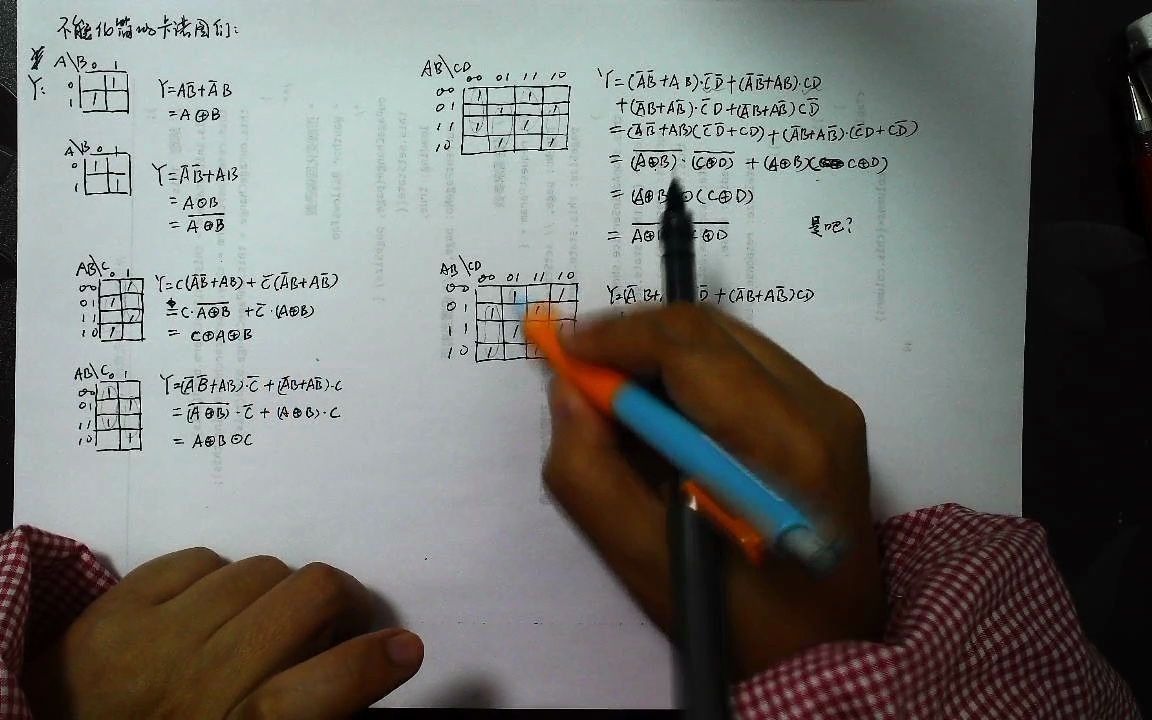 不能化简的卡诺图们:
Y:
A\B 0 1
0 1
1 1
Y=AB̅+A̅B
=A⊕B
A\B 0 1
0 1
1 1
Y=A̅B̅+AB
=A⊙B
=A̅⊕̅B̅
AB\C 0 1
00 1
01 1
11 1
10 1
Y=C(A̅B̅+AB)+C̅(A̅B+AB̅)
=C·A̅⊕̅B̅+C̅·(A⊕B)
=C⊕A⊕B
AB\C 0 1
00 1
01 1
11 1
10 1
Y=(A̅B̅+AB)·C̅+(A̅B+AB̅)·C
=(A̅⊕̅B̅)·C̅+(A⊕B)·C
=A⊕B⊙C
AB\CD 00 01 11 10
00 1 1
01 1 1
11 1 1
10 1 1
Y=(A̅B̅+AB)·C̅D̅+(A̅B̅+AB)·CD
+(A̅B+AB̅)·C̅D+(A̅B+AB̅)CD̅
=(A̅B̅+AB)(C̅D̅+CD)+(A̅B+AB̅)·(C̅D+CD̅)
=(A̅⊕̅B̅)·(C̅⊕̅D̅)+(A⊕B)(C⊕D)
=(A⊕B ⊙(C⊕D)
=A⊕ ⊕D
是吧?
AB\CD 00 01 11 10
00 1 1
01 1 1
11 1
10 1
Y=(A̅B+ D̅+(A̅B+AB̅)CD